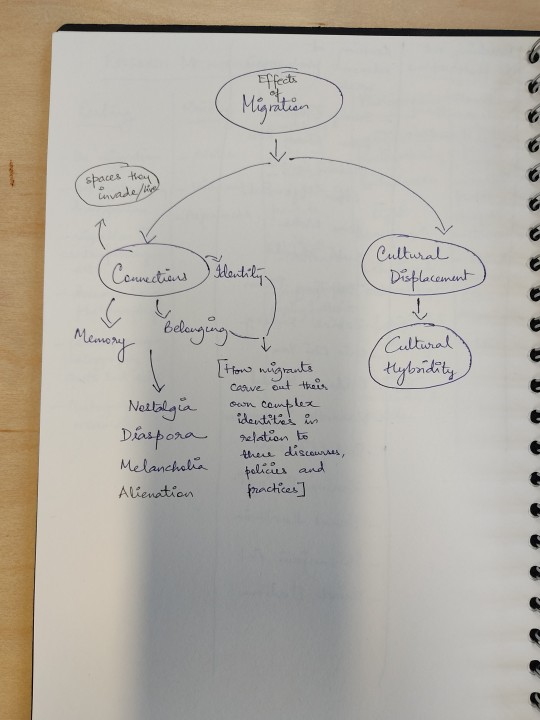 Effects
of
Migration
spaces they
invade/live
Connections
Identity
Cultural
Displacement
Memory
Belonging
Cultural
Hybridity
[How migrants
carve out their
own complex
identities in
relation to
these discourses,
policies and
practices]
Nostalgia
Diaspora
Melancholia
Alienation